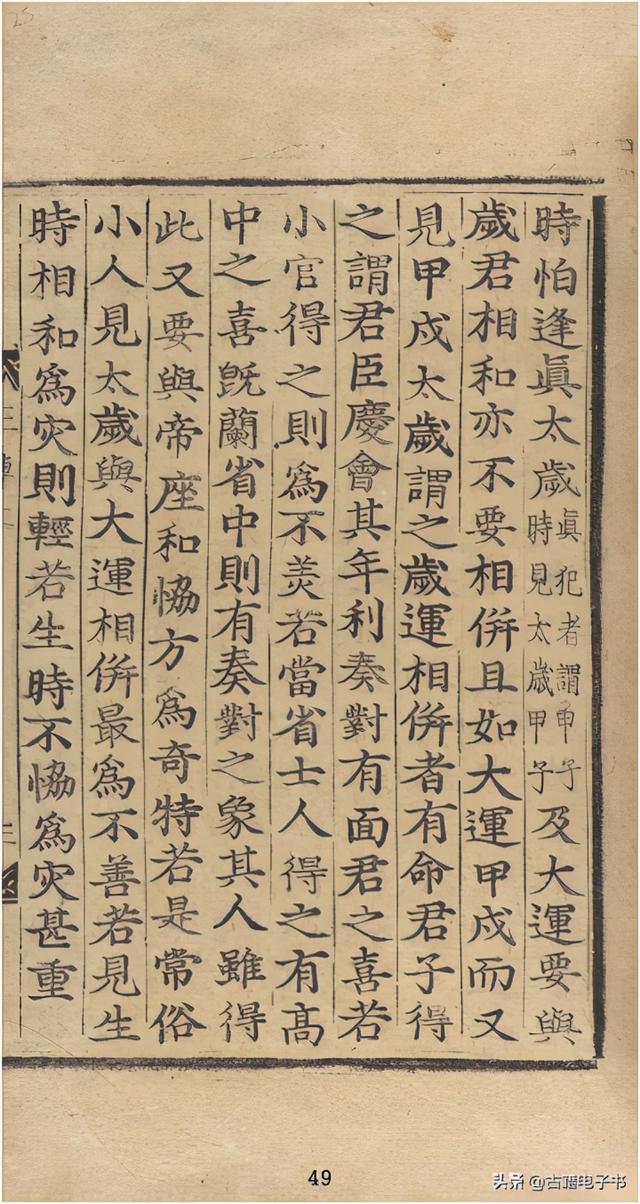 時怕逢眞太歲眞犯者謂甲子時見太歲甲子及大運要與
歲君相和亦不要相倂且如大運甲戍而又
見甲戍太歲謂之歲運相倂者有命君子得
之謂君臣慶會其年利奏對有面君之喜若
小官得之則爲不美若當省士人得之有高
中之喜旣蘭省中則有奏對之象其人雖得
此又要與帝座和恊方爲奇特若是常俗
小人見太歲與大運相倂最爲不善若見生
時相和爲灾則輕若生時不恊爲灾甚重
49
头条 @古籍电子书